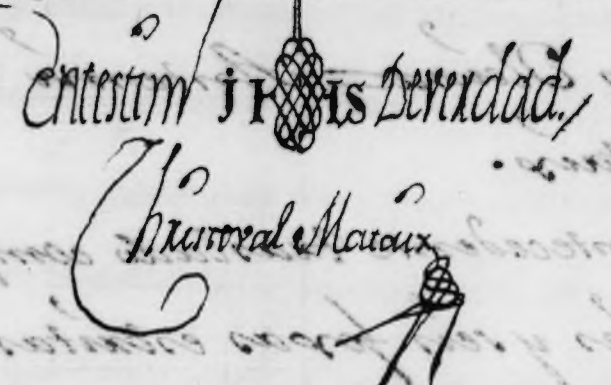 En testim IHS De verdad./
Christoval Mataix